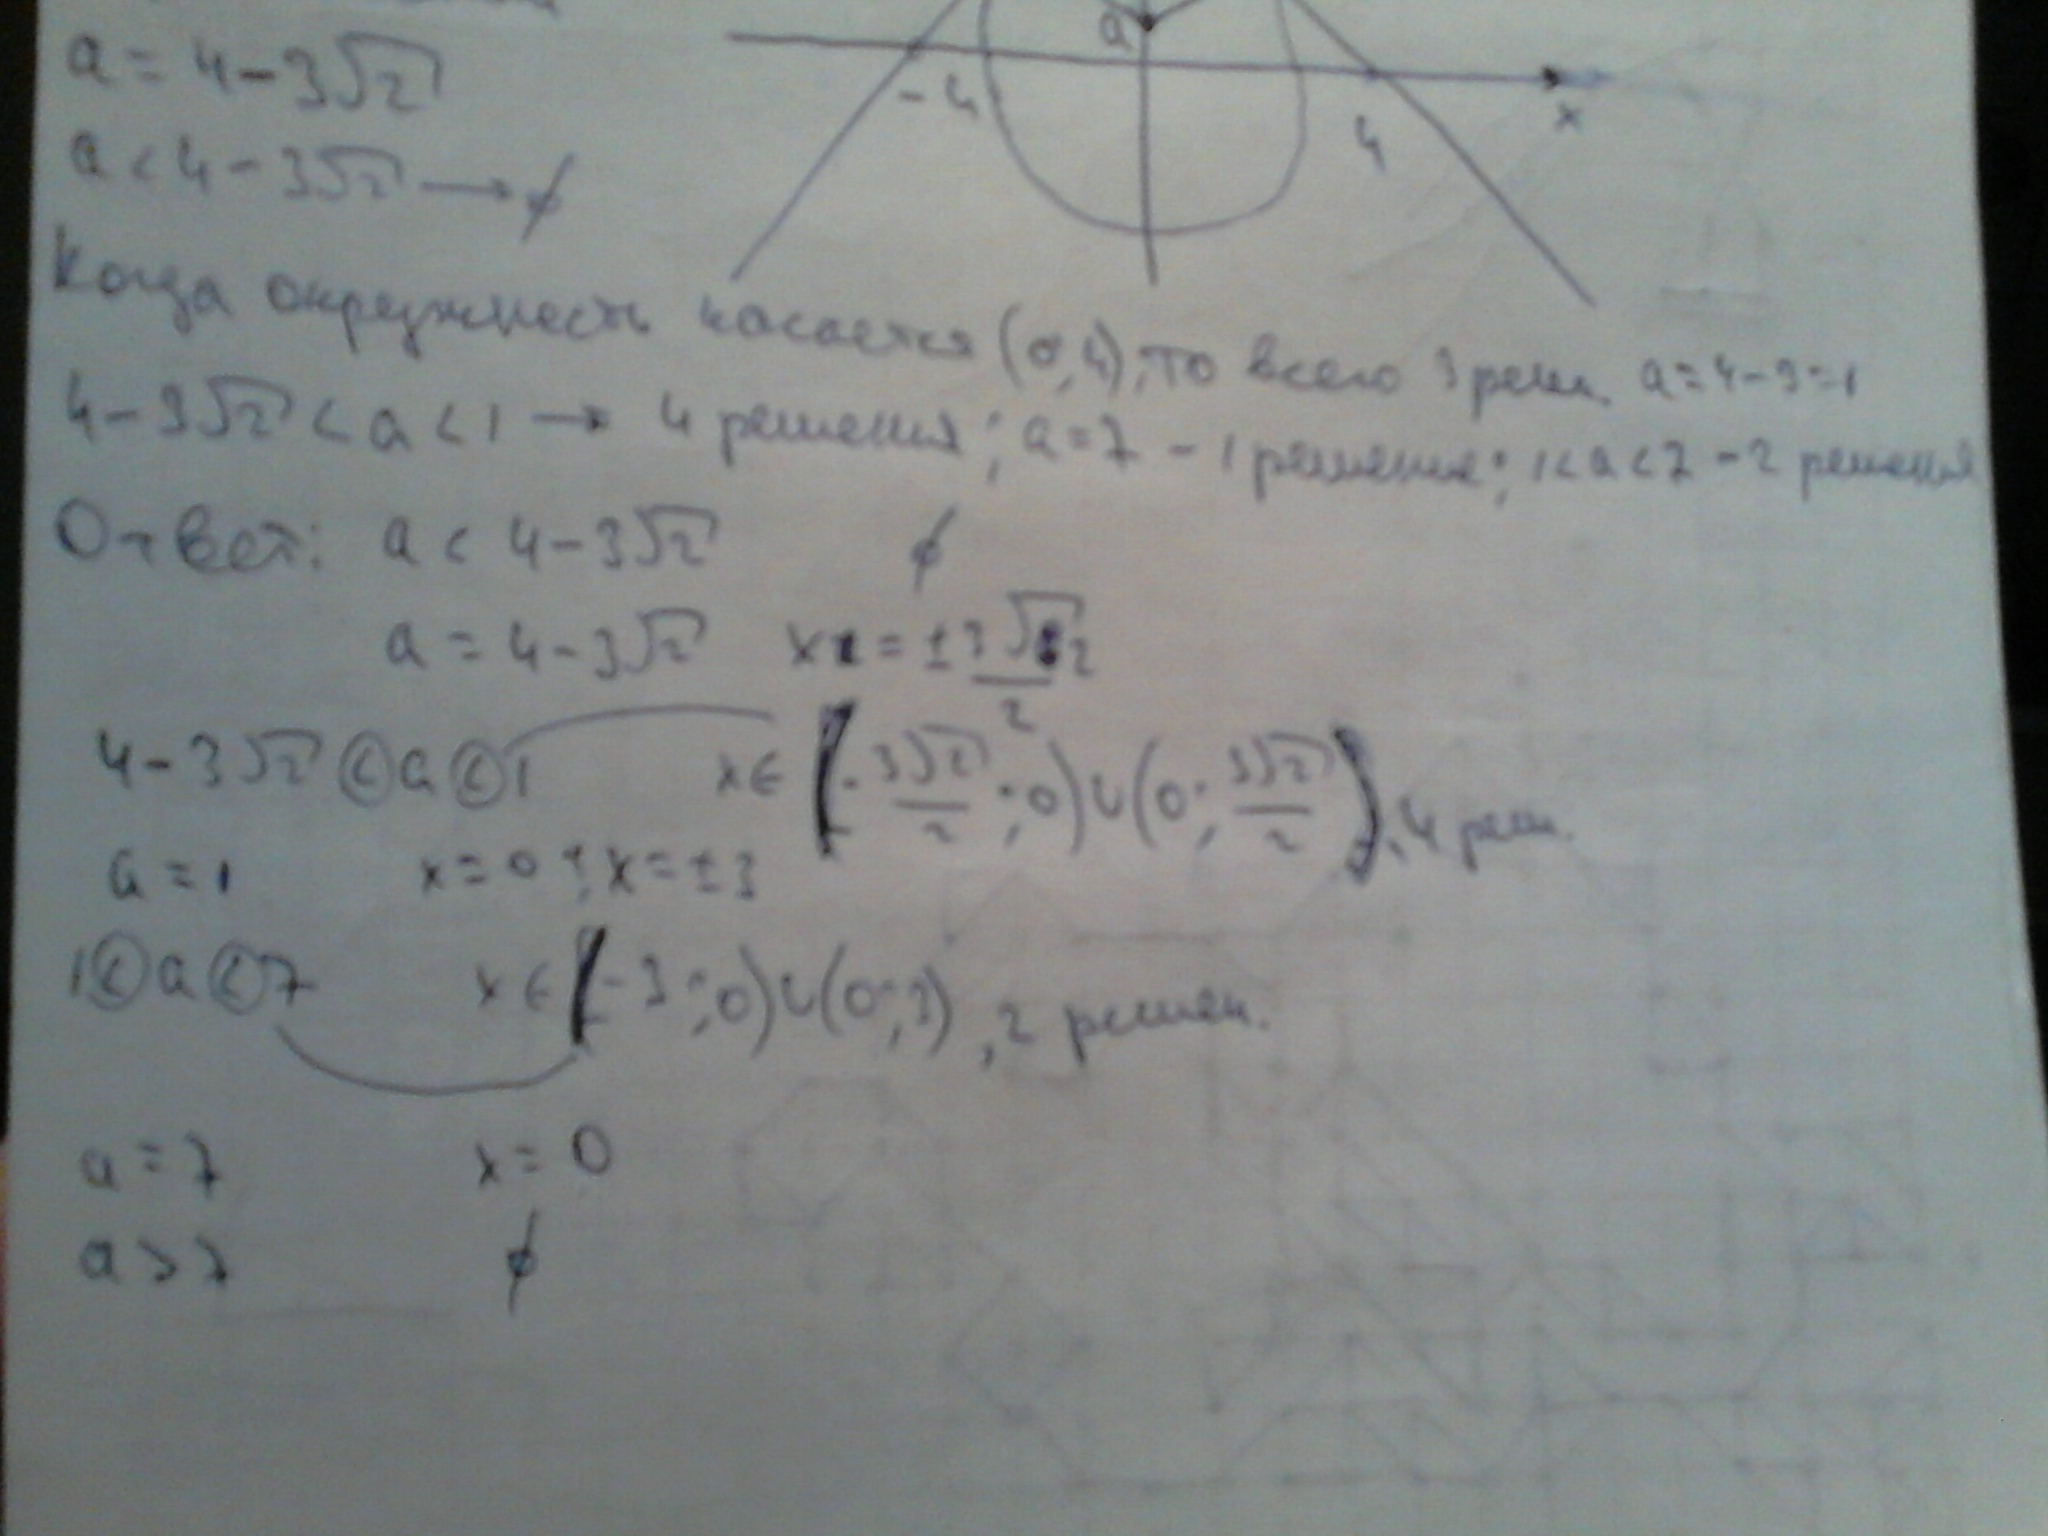 a = 4-3√2
a
-4
4
x
a < 4-3√2 → ∅
Когда окружность касается (0,4), то всего 3 реш. a=4-3=1
4-3√2 < a < 1 → 4 решения; a=7 - 1 решение; 1<a<7 - 2 решения
Ответ: a < 4-3√2 ∅
a = 4-3√2 x = ±3√2/2
4-3√2 < a < 1 x ∈ (-3√2/2 ; 0) ∪ (0; 3√2/2), 4 реш.
a = 1 x = 0; x = ±3
1 < a < 7 x ∈ (-3 ; 0) ∪ (0; 3), 2 решен.
a = 7 x = 0
a > 7 ∅